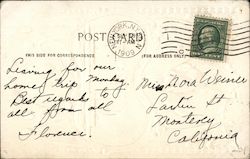 POST CARD
NEW YORK, N.Y.
1909
THIS SIDE FOR CORRESPONDENCE
(FOR ADDRESS ONLY)
Leaving for our
home trip Monday.
Best regards to
all from all
Florence.
Miss Nora Weinle
Larkin St
Monterey
California